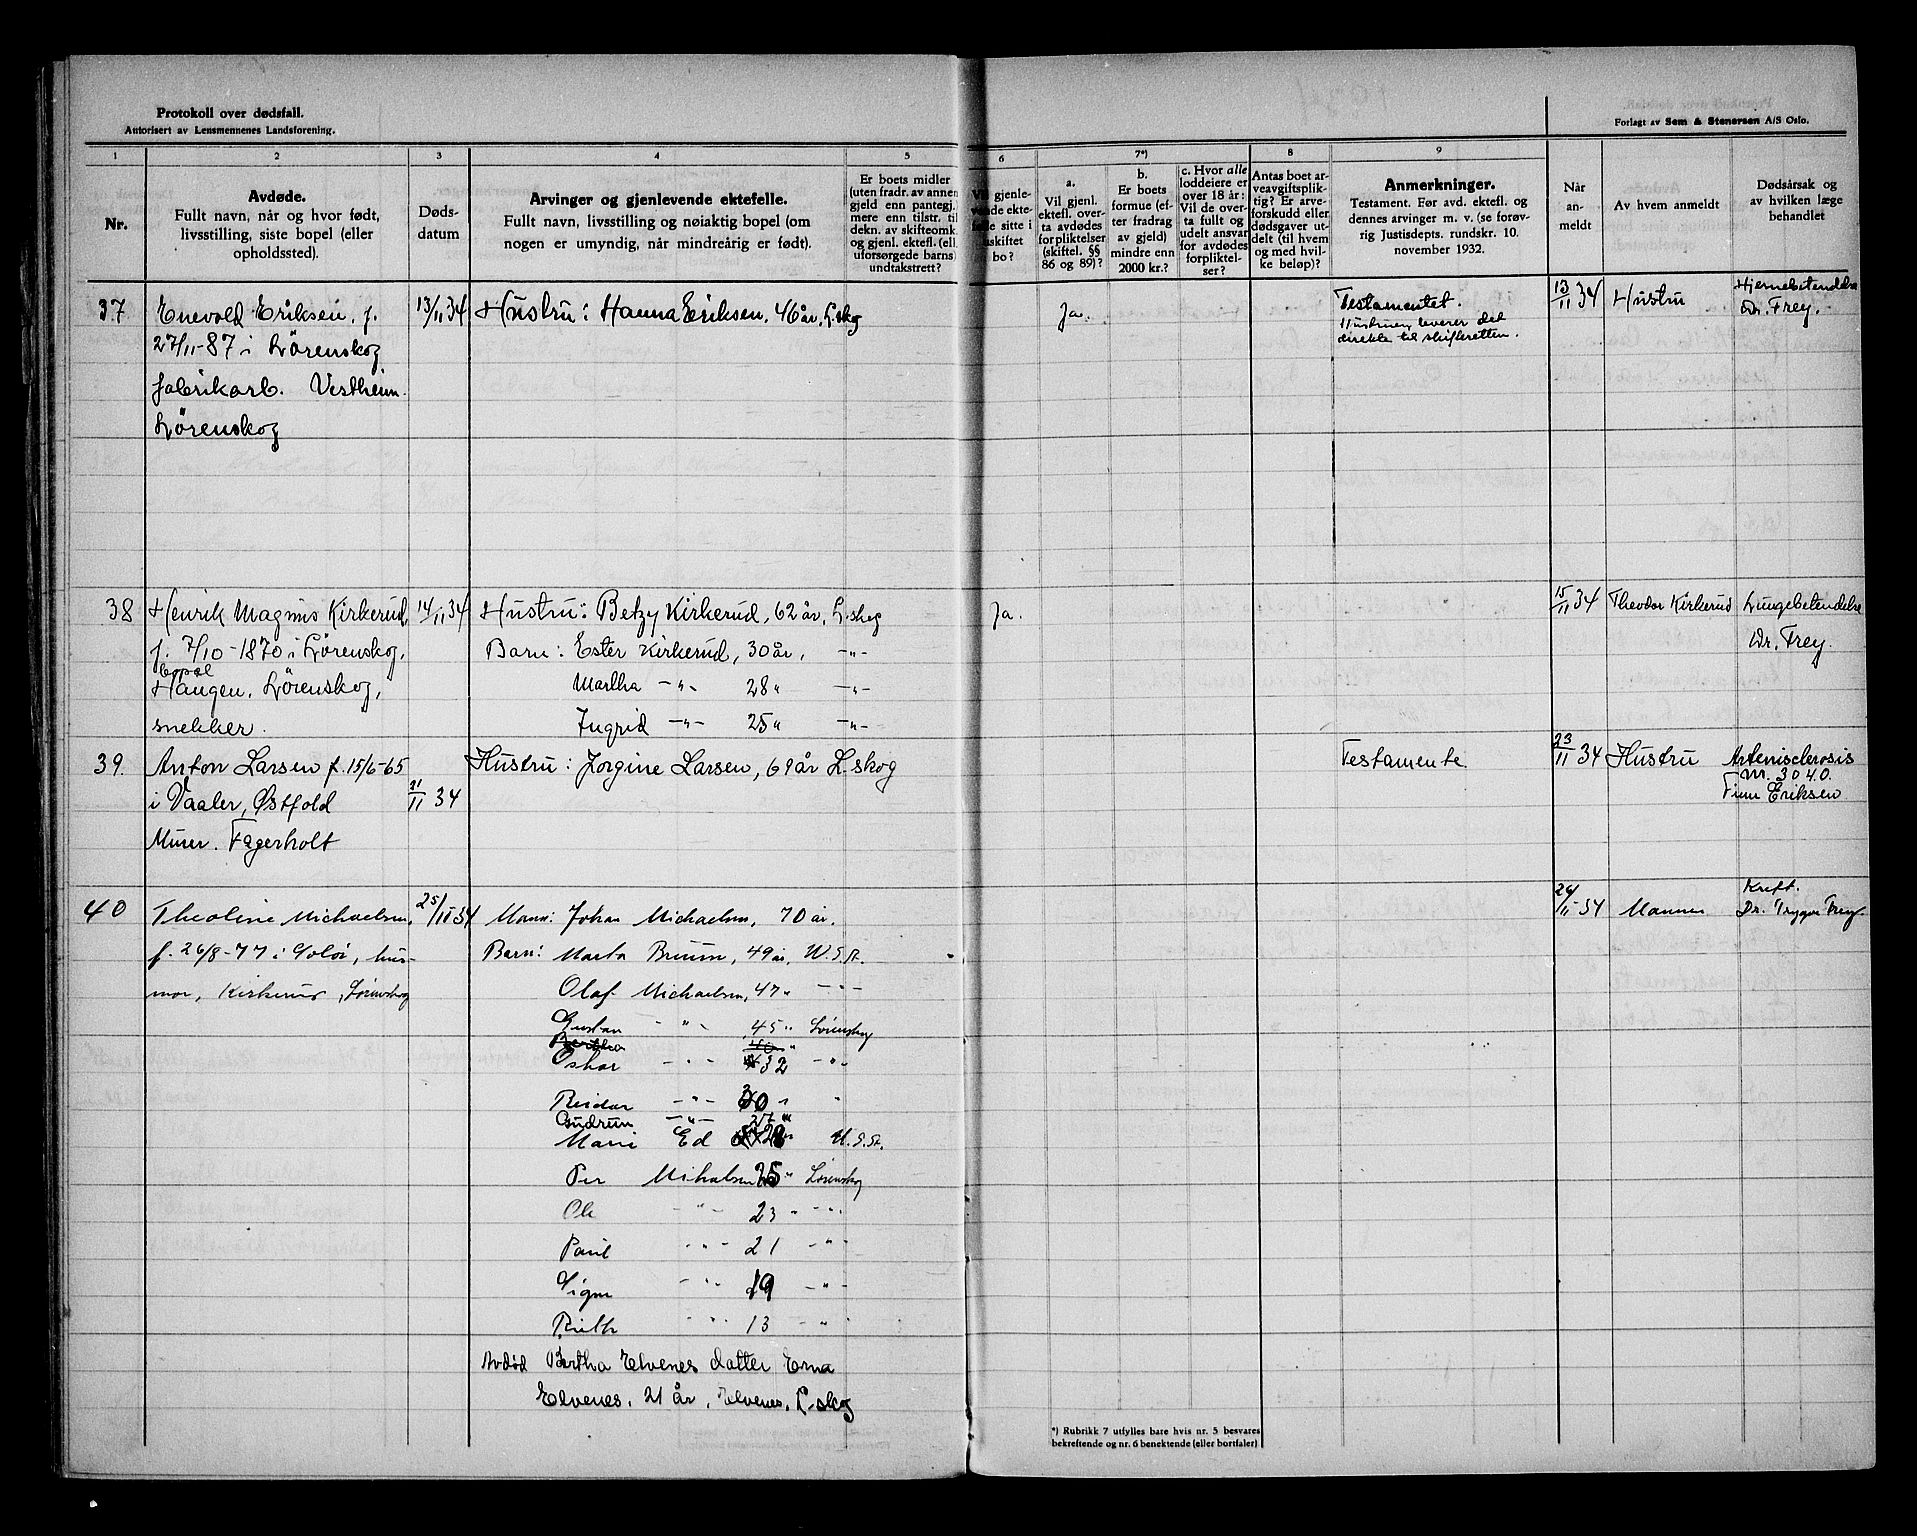 Protokoll over dødsfall.
Autorisert av Lensmennenes Landsforening.
Forlagt av Sem & Stenersen A/S Oslo.
1 2 3 4 5 6 7*) 8 9
Nr.
Avdøde.
Fullt navn, når og hvor født,
livsstilling, siste bopel (eller
opholdssted).
Døds-
datum
Arvinger og gjenlevende ektefelle.
Fullt navn, livsstilling og nøiaktig bopel (om
nogen er umyndig, når mindreårig er født).
Er boets midler
(uten fradr. av annen
gjeld enn pantegj.)
mere enn tilstr. til
dekn. av skifteomk.
og gjenl. ektefl. (ell.
uforsørgede barns)
undtakstrett?
Vil gjenle-
vende ekte-
felle sitte i
uskiftet
bo?
a.
Vil gjenl.
ektefl. over-
ta avdødes
forpliktelser
(skiftel. §§
86 og 89)?
b.
Er boets
formue (ef-
ter fradrag
av gjeld)
mindre enn
2000 kr.?
c. Hvor alle
loddeiere er
over 18 år:
Vil de over-
ta fullt og
udelt ansvar
for avdødes
forpliktel-
ser?
Antas boet ar-
veavgiftsplik-
tig? Er arve-
forskudd eller
dødsgaver ut-
delt (til hvem
og med hvil-
ke beløp)?
Anmerkninger.
Testament. Før avd. ektefl. og
dennes arvinger m. v. (se forøv-
rig Justisdepts. rundskr. 10.
november 1932.
Når
an-
meldt
Av hvem anmeldt
Dødsårsak og
av hvilken læge
behandlet
37 Enevold Eriksen, f. 13/11 34 Hustru: Hanna Eriksen, 46 år, L.skog Ja. Testamentet. 13/11 34 Hustru Hjernebetendelse
27/11-87 i Lørenskog Hustruen leverer det Dr. Frey.
direkte til skifteretten.
fabrikarb. Vestheim.
Lörenskog
38 Henrik Magnus Kirkerud, 14/11 34 Hustru: Betzy Kirkerud, 62 år, L.skog Ja. 15/11 34 Theodor Kirkerud Lungebetendelse
f. 7/10-1870 i Lörenskog, Barn: Ester Kirkerud, 30 år, -"- Dr. Frey.
bopæl
Haugen, Lörenskog, Martha -"- 28 " -"-
snekker. Ingrid -"- 25 " -"-
39. Anton Larsen f. 15/6-65 21/11 34 Hustru: Jorgine Larsen, 69 år L.skog Testamente 23/11 34 Hustru Arteriosclerosis
nr. 3040.
i Vaaler, Østfold Finn Eriksen
Murer. Fagerholt
40 Theoline Michaelsen, 25/11 34 Mann: Johan Michaelsen, 70 år. 26/11-34 Mannen Kreft.
Dr. Trygve Frey.
f. 26/8-77 i Solør, hus- Barn: Marta Bruum, 49 år, U.S.A.
mor, Kirkerud, Lørenskog Olaf Michaelsen, 47 " -"-
Gustav -"- 45 " Lørenskog
Bertha 40 "
Oskar -"- 32 -"-
Reidar -"- 30 " "
Gudrun -"- 27 "
Marie Ed 28 " U.S.A.
Per Mihalsen 25 " Lørenskog
Ole -"- 23 " -"-
Paul -"- 21 -"-
Signe -"- 19 -"-
Ruth -"- 13 -"-
Avdød Bertha Elvenes datter Erna
Elvenes, 21 år, Elvenes, L-skog
*) Rubrikk 7 utfylles bare hvis nr. 5 besvares
bekreftende og nr. 6 benektende (eller bortfaler)